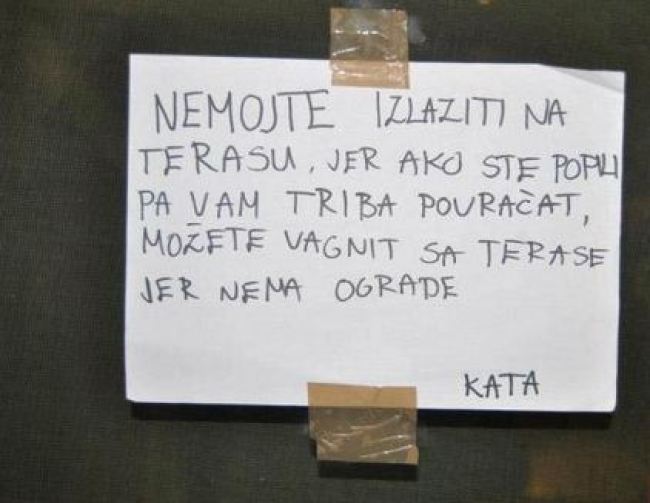 NEMOJTE IZLAZITI NA
TERASU, JER AKO STE POPILI
PA VAM TRIBA POVRAČAT,
MOŽETE VAGNIT SA TERASE
JER NEMA OGRADE
KATA